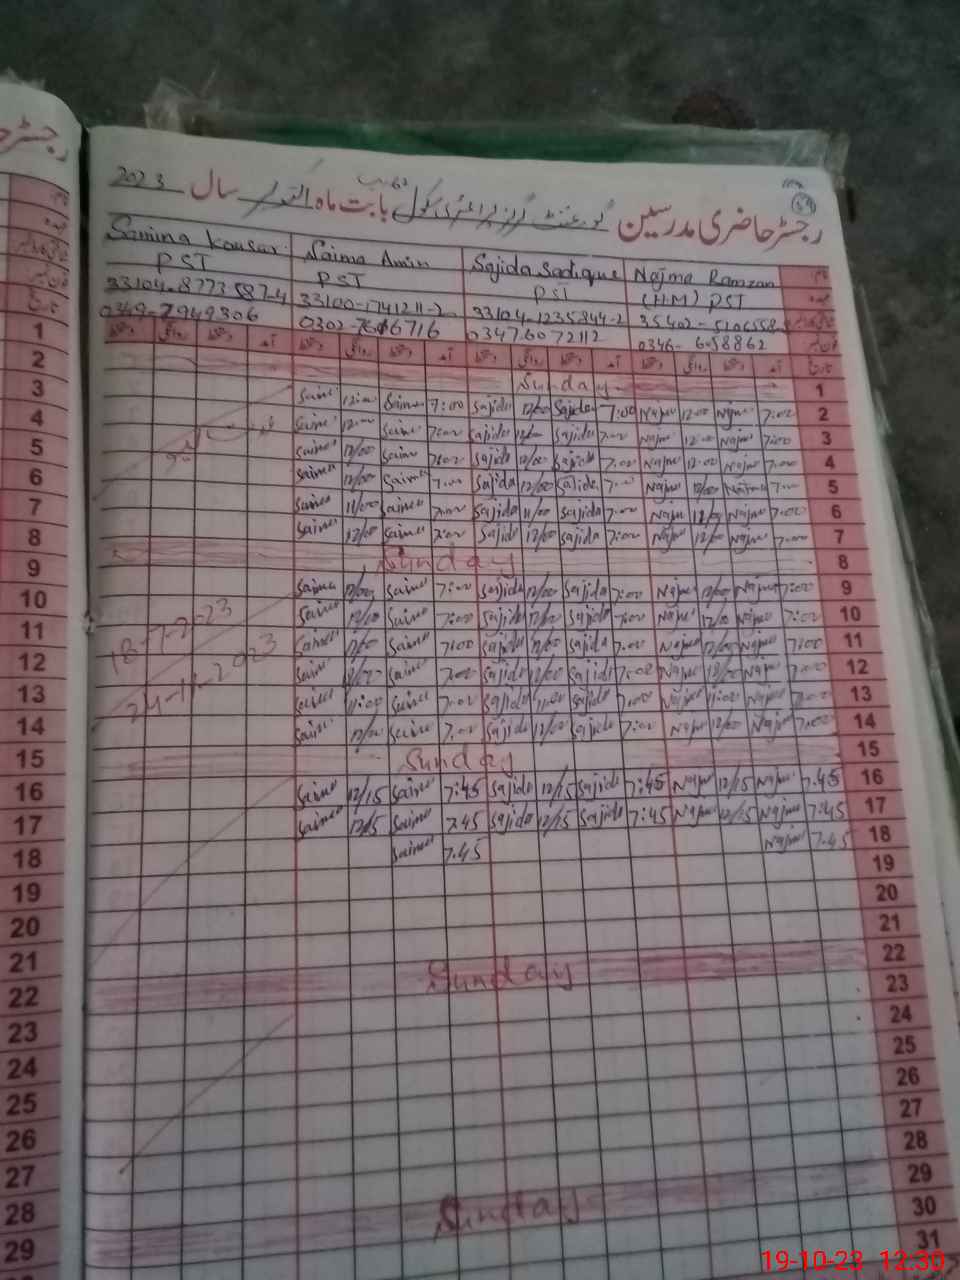 رجسٹر حاضری مدرسین گورنمنٹ گرلز پرائمری سکول بابت ماہ اکتوبر سال 2023
Samina Kausar Saima Amin Sajida Sadique Najma Ramzan
PST PST PST (H.M) PST
33104-8773587-4 33100-1741211-2 33104-1235844-2 35402-
0349-7949306 0302-7646716 03476072112 0346-6058862
Sunday 1
Saima 12:00 Saima 7:00 Sajida 12/00 Sajida 7:00 Najma 12:00 Najma 7:00 2
Saima 12:00 Saima 7:00 Sajida 12/00 Sajida 7:00 Najma 12:00 Najma 7:00 3
Saima 12/00 Saima 7:00 Sajida 12/00 Sajida 7:00 Najma 12:00 Najma 7:00 4
Saima 12/00 Saima 7:00 Sajida 12/00 Sajida 7:00 Najma 12/00 Najma 7:00 5
Saima 11/00 Saima 7:00 Sajida 11/00 Sajida 7:00 Najma 12/00 Najma 7:00 6
Saima 12/00 Saima 7:00 Sajida 12/00 Sajida 7:00 Najma 12/00 Najma 7:00 7
Sunday 8
Saima 12/00 Saima 7:00 Sajida 12/00 Sajida 7:00 Najma 12/00 Najma 7:00 9
18-7-2-23 Saima 12/00 Saima 7:00 Sajida 12/00 Sajida 7:00 Najma 12/00 Najma 7:00 10
Saima 12/00 Saima 7:00 Sajida 12/00 Sajida 7:00 Najma 12/00 Najma 7:00 11
24-11-2023 Saima 12/00 Saima 7:00 Sajida 12/00 Sajida 7:00 Najma 12/00 Najma 7:00 12
Saima 11:00 Saima 7:00 Sajida 11:00 Sajida 7:00 Najma 11:00 Najma 7:00 13
Saima 12/00 Saima 7:00 Sajida 12/00 Sajida 7:00 Najma 12/00 Najma 7:00 14
Sunday 15
Saima 12/15 Saima 7:45 Sajida 12/15 Sajida 7:45 Najma 12/15 Najma 7:45 16
Saima 12/15 Saima 7:45 Sajida 12/15 Sajida 7:45 Najma 12/15 Najma 7:45 17
Saima 7:45 Najma 7:45 18
19
20
21
Sunday 22
23
24
25
26
27
28
29
Sunday 30
31
1
2
3
4
5
6
7
8
9
10
11
12
13
14
15
16
17
18
19
20
21
22
23
24
25
26
27
28
29
19-10-23 12:30